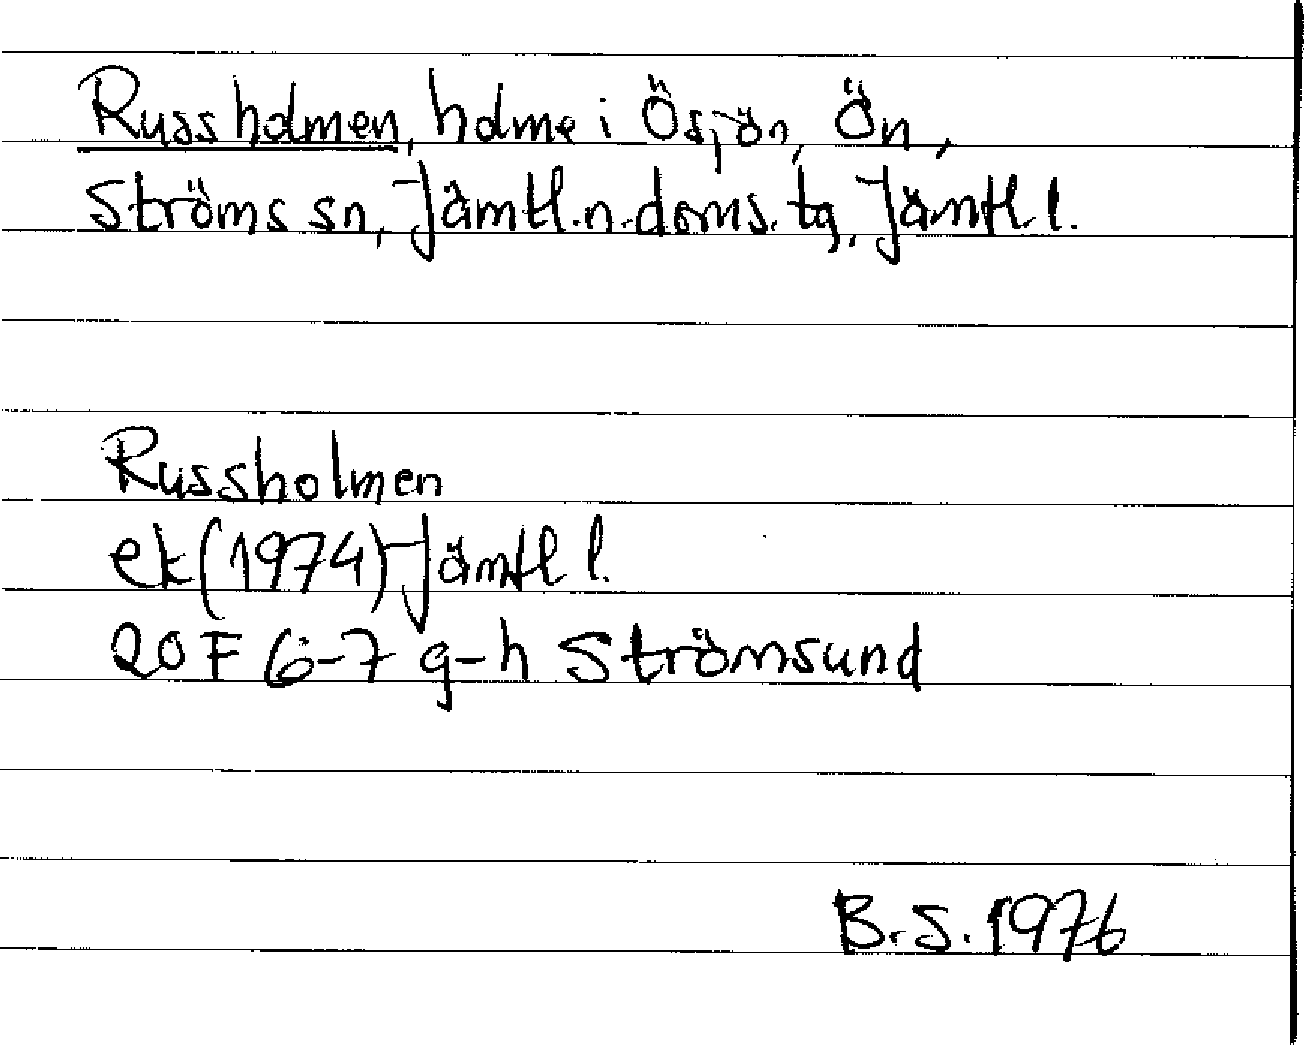 Russholmen, holme i Ösjön, Ön,
Ströms sn, Jämtl.n.doms.tg, Jämtl.l.
Russholmen
ek(1974) Jämtl l.
20 F 6-7 g-h Strömsund
B.S. 1976